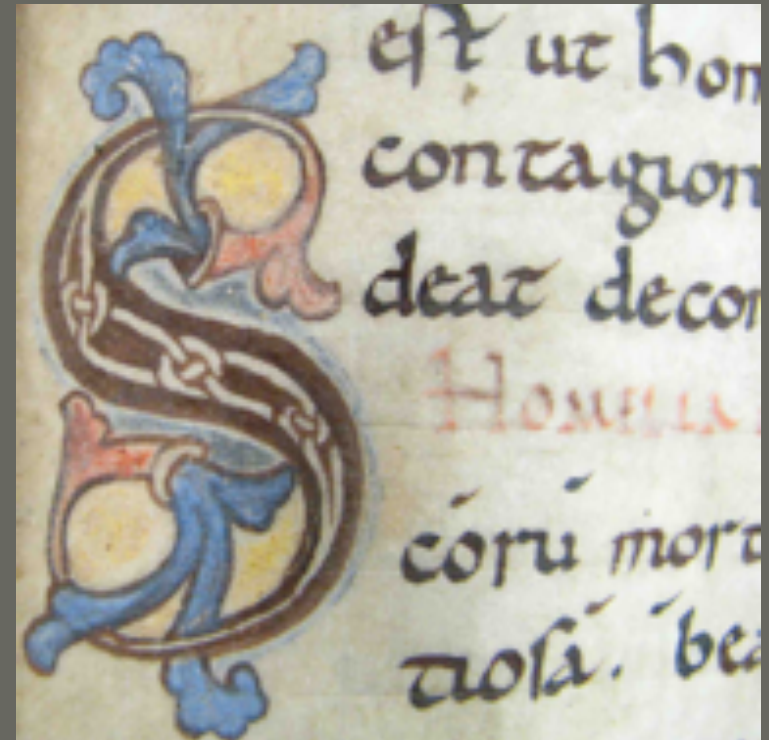 eſt ut hom
contagion
deat decor
Scōrū mort
tioſā. bea